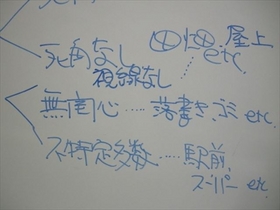 死角なし 田畑、屋上
視線なし ‥‥ etc.
無関心 ‥‥ 落書き、ゴミ etc.
不特定多数 ‥‥ 駅前、
スーパー etc.